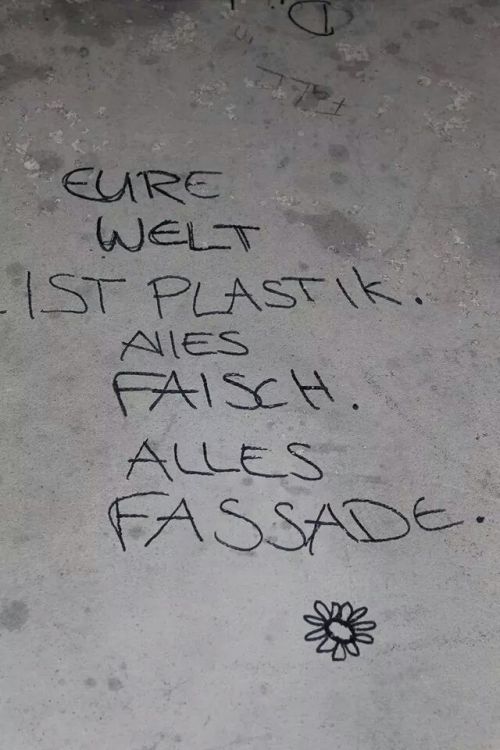 EURE
WELT
IST PLASTIK.
AllES
FAlSCH.
ALLES
FASSADE.